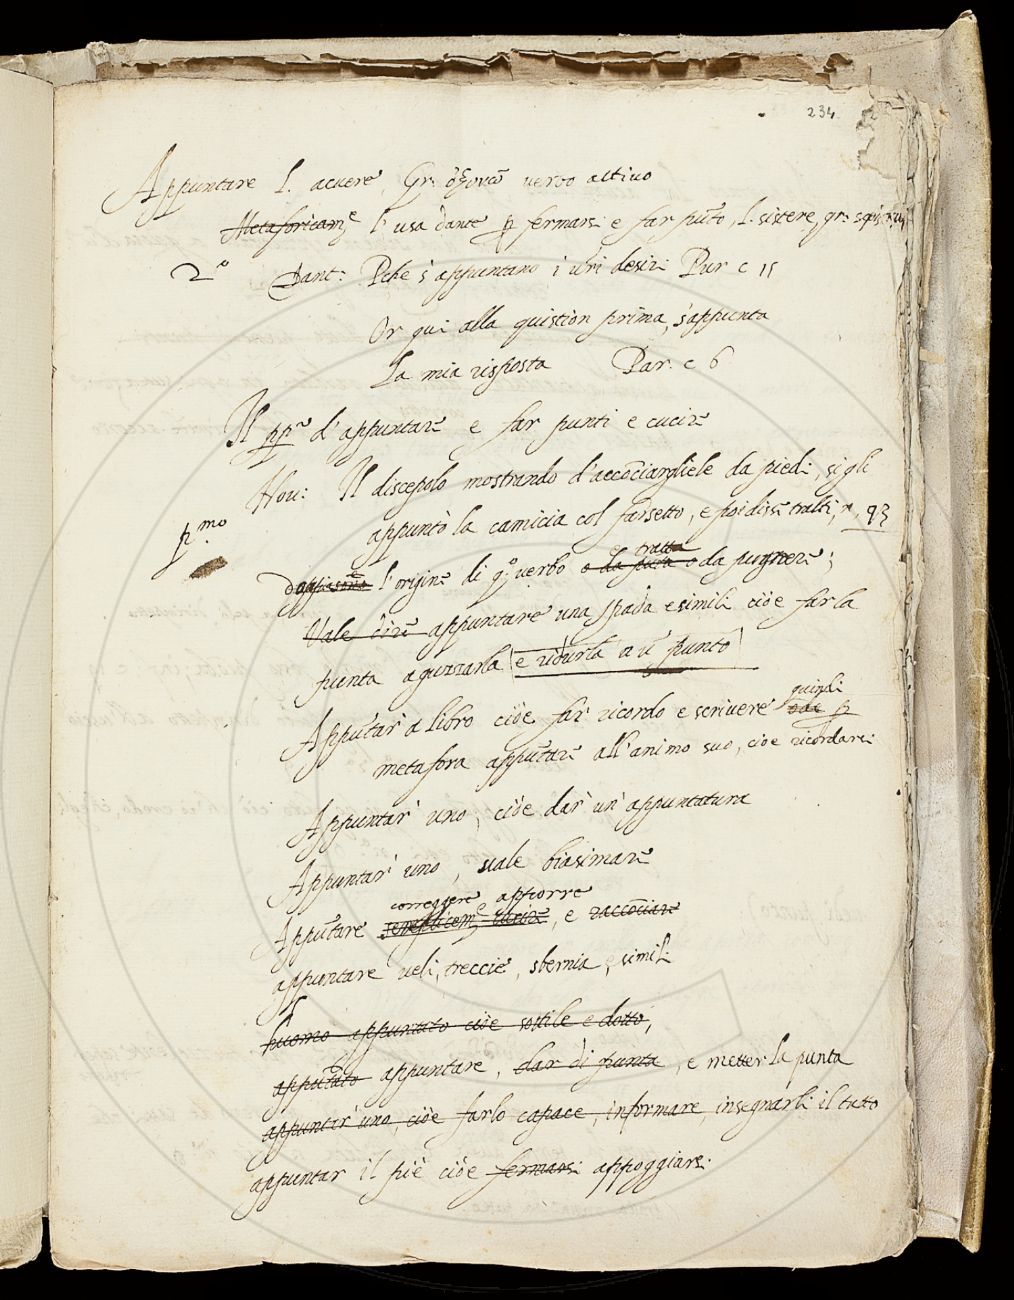 234
Appuntare l. acuere, Gr: verbo attiuo
Metaforicam.e l'usa Dante p fermarsi e far pũto, l. sistere, gr:
2.o Dant: Pche s'appuntano i vr̃i desiri Pur c 15
Or qui alla quistion prima, s'appunta
La mia risposta Par: c 6
Il pp.e d'appuntare e far punti e cucire
Nou: Il discepolo mostrando d'accõciargliele da piedi, si gli
p.mo appuntò la camicia col farsetto, e poi disse n. 93
e tratta
l'origine di q.o verbo o da punta o da pugnere;
Vale dire appuntare una spada e simili cióe farla
punta aguzzarla e ridurla a ũ punto
quindi
Appũtar' a libro cióe far ricordo e scriuere p
metafora appũtare all'animo suo, cióe ricordarsi
Appuntar' uno, cióe dar' un' appuntatura
Appuntar' uno, uale biasimare
correggere e apporre
Appũtare semplicem.e cucire, e raccõciare
appuntare ueli, treccie, sbernia, e simili
huomo appuntato cióe sottile e dotto,
appũtato appuntare, dar di punta, e metter la punta
appuntar' uno, cióe farlo capace, informare, insegnarli il tutto
appuntar il pié cióe fermarsi appoggiarsi.